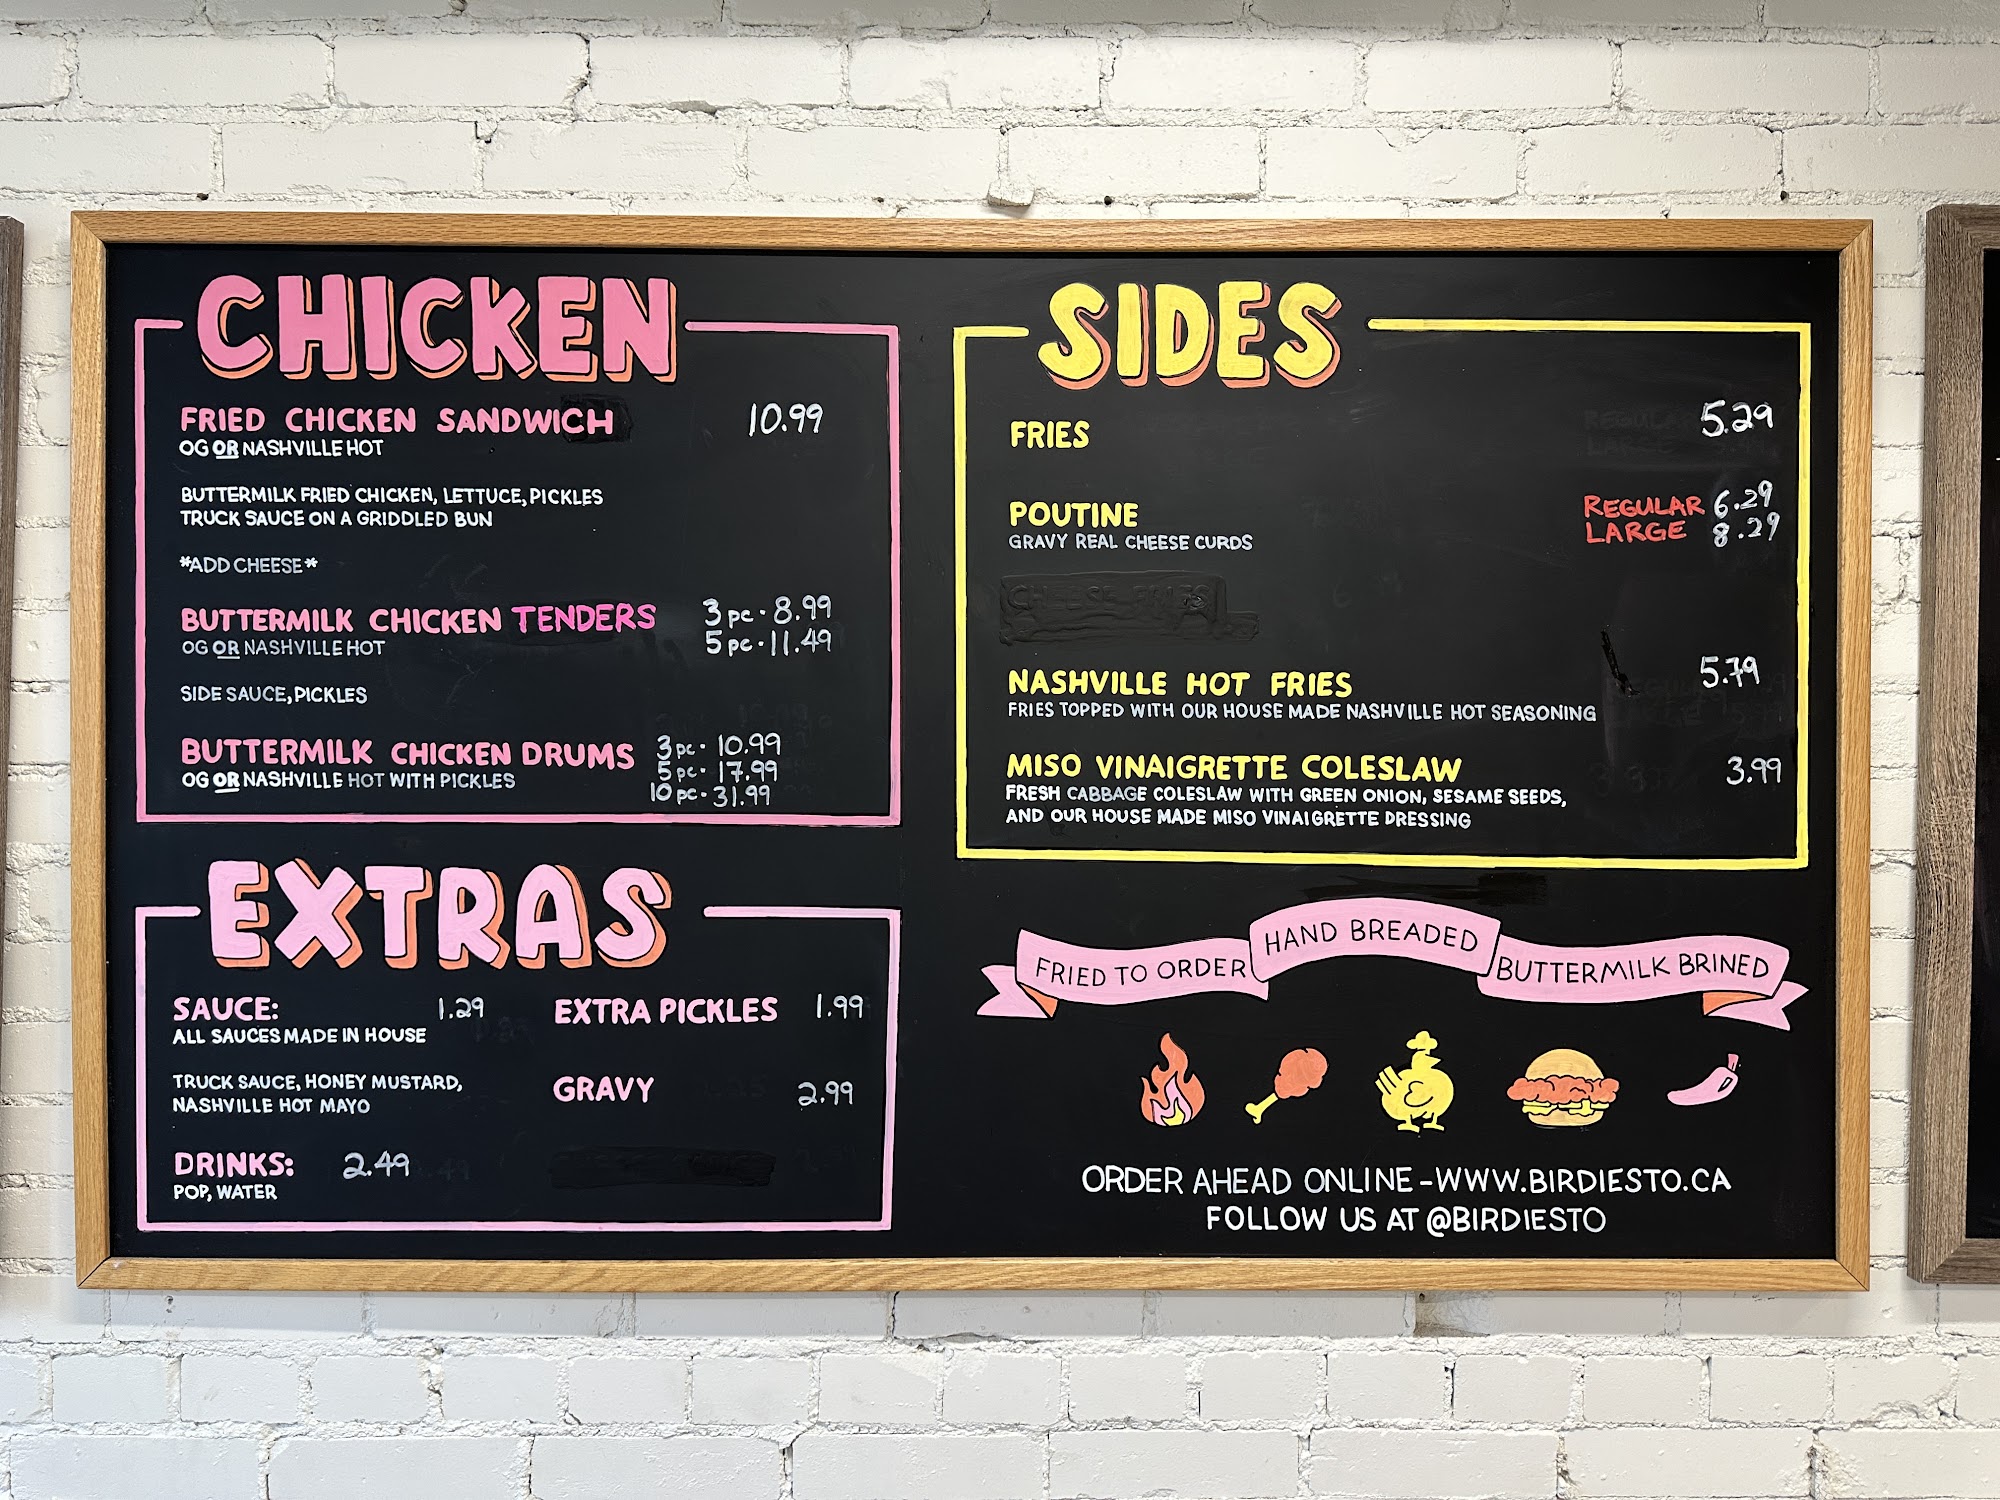 CHICKEN
FRIED CHICKEN SANDWICH 10.99
OG OR NASHVILLE HOT
BUTTERMILK FRIED CHICKEN, LETTUCE, PICKLES
TRUCK SAUCE ON A GRIDDLED BUN
*ADD CHEESE*
BUTTERMILK CHICKEN TENDERS 3 pc · 8.99
5 pc · 11.49
OG OR NASHVILLE HOT
SIDE SAUCE, PICKLES
BUTTERMILK CHICKEN DRUMS 3 pc · 10.99
5 pc · 17.99
10 pc · 31.99
OG OR NASHVILLE HOT WITH PICKLES
EXTRAS
SAUCE: 1.29
ALL SAUCES MADE IN HOUSE
TRUCK SAUCE, HONEY MUSTARD,
NASHVILLE HOT MAYO
DRINKS: 2.49
POP, WATER
EXTRA PICKLES 1.99
GRAVY 2.99
SIDES
FRIES 5.29
POUTINE REGULAR 6.29
LARGE 8.29
GRAVY REAL CHEESE CURDS
CHEESE FRIES
NASHVILLE HOT FRIES 5.79
FRIES TOPPED WITH OUR HOUSE MADE NASHVILLE HOT SEASONING
MISO VINAIGRETTE COLESLAW 3.99
FRESH CABBAGE COLESLAW WITH GREEN ONION, SESAME SEEDS,
AND OUR HOUSE MADE MISO VINAIGRETTE DRESSING
FRIED TO ORDER HAND BREADED BUTTERMILK BRINED
ORDER AHEAD ONLINE - WWW.BIRDIESTO.CA
FOLLOW US AT @BIRDIESTO